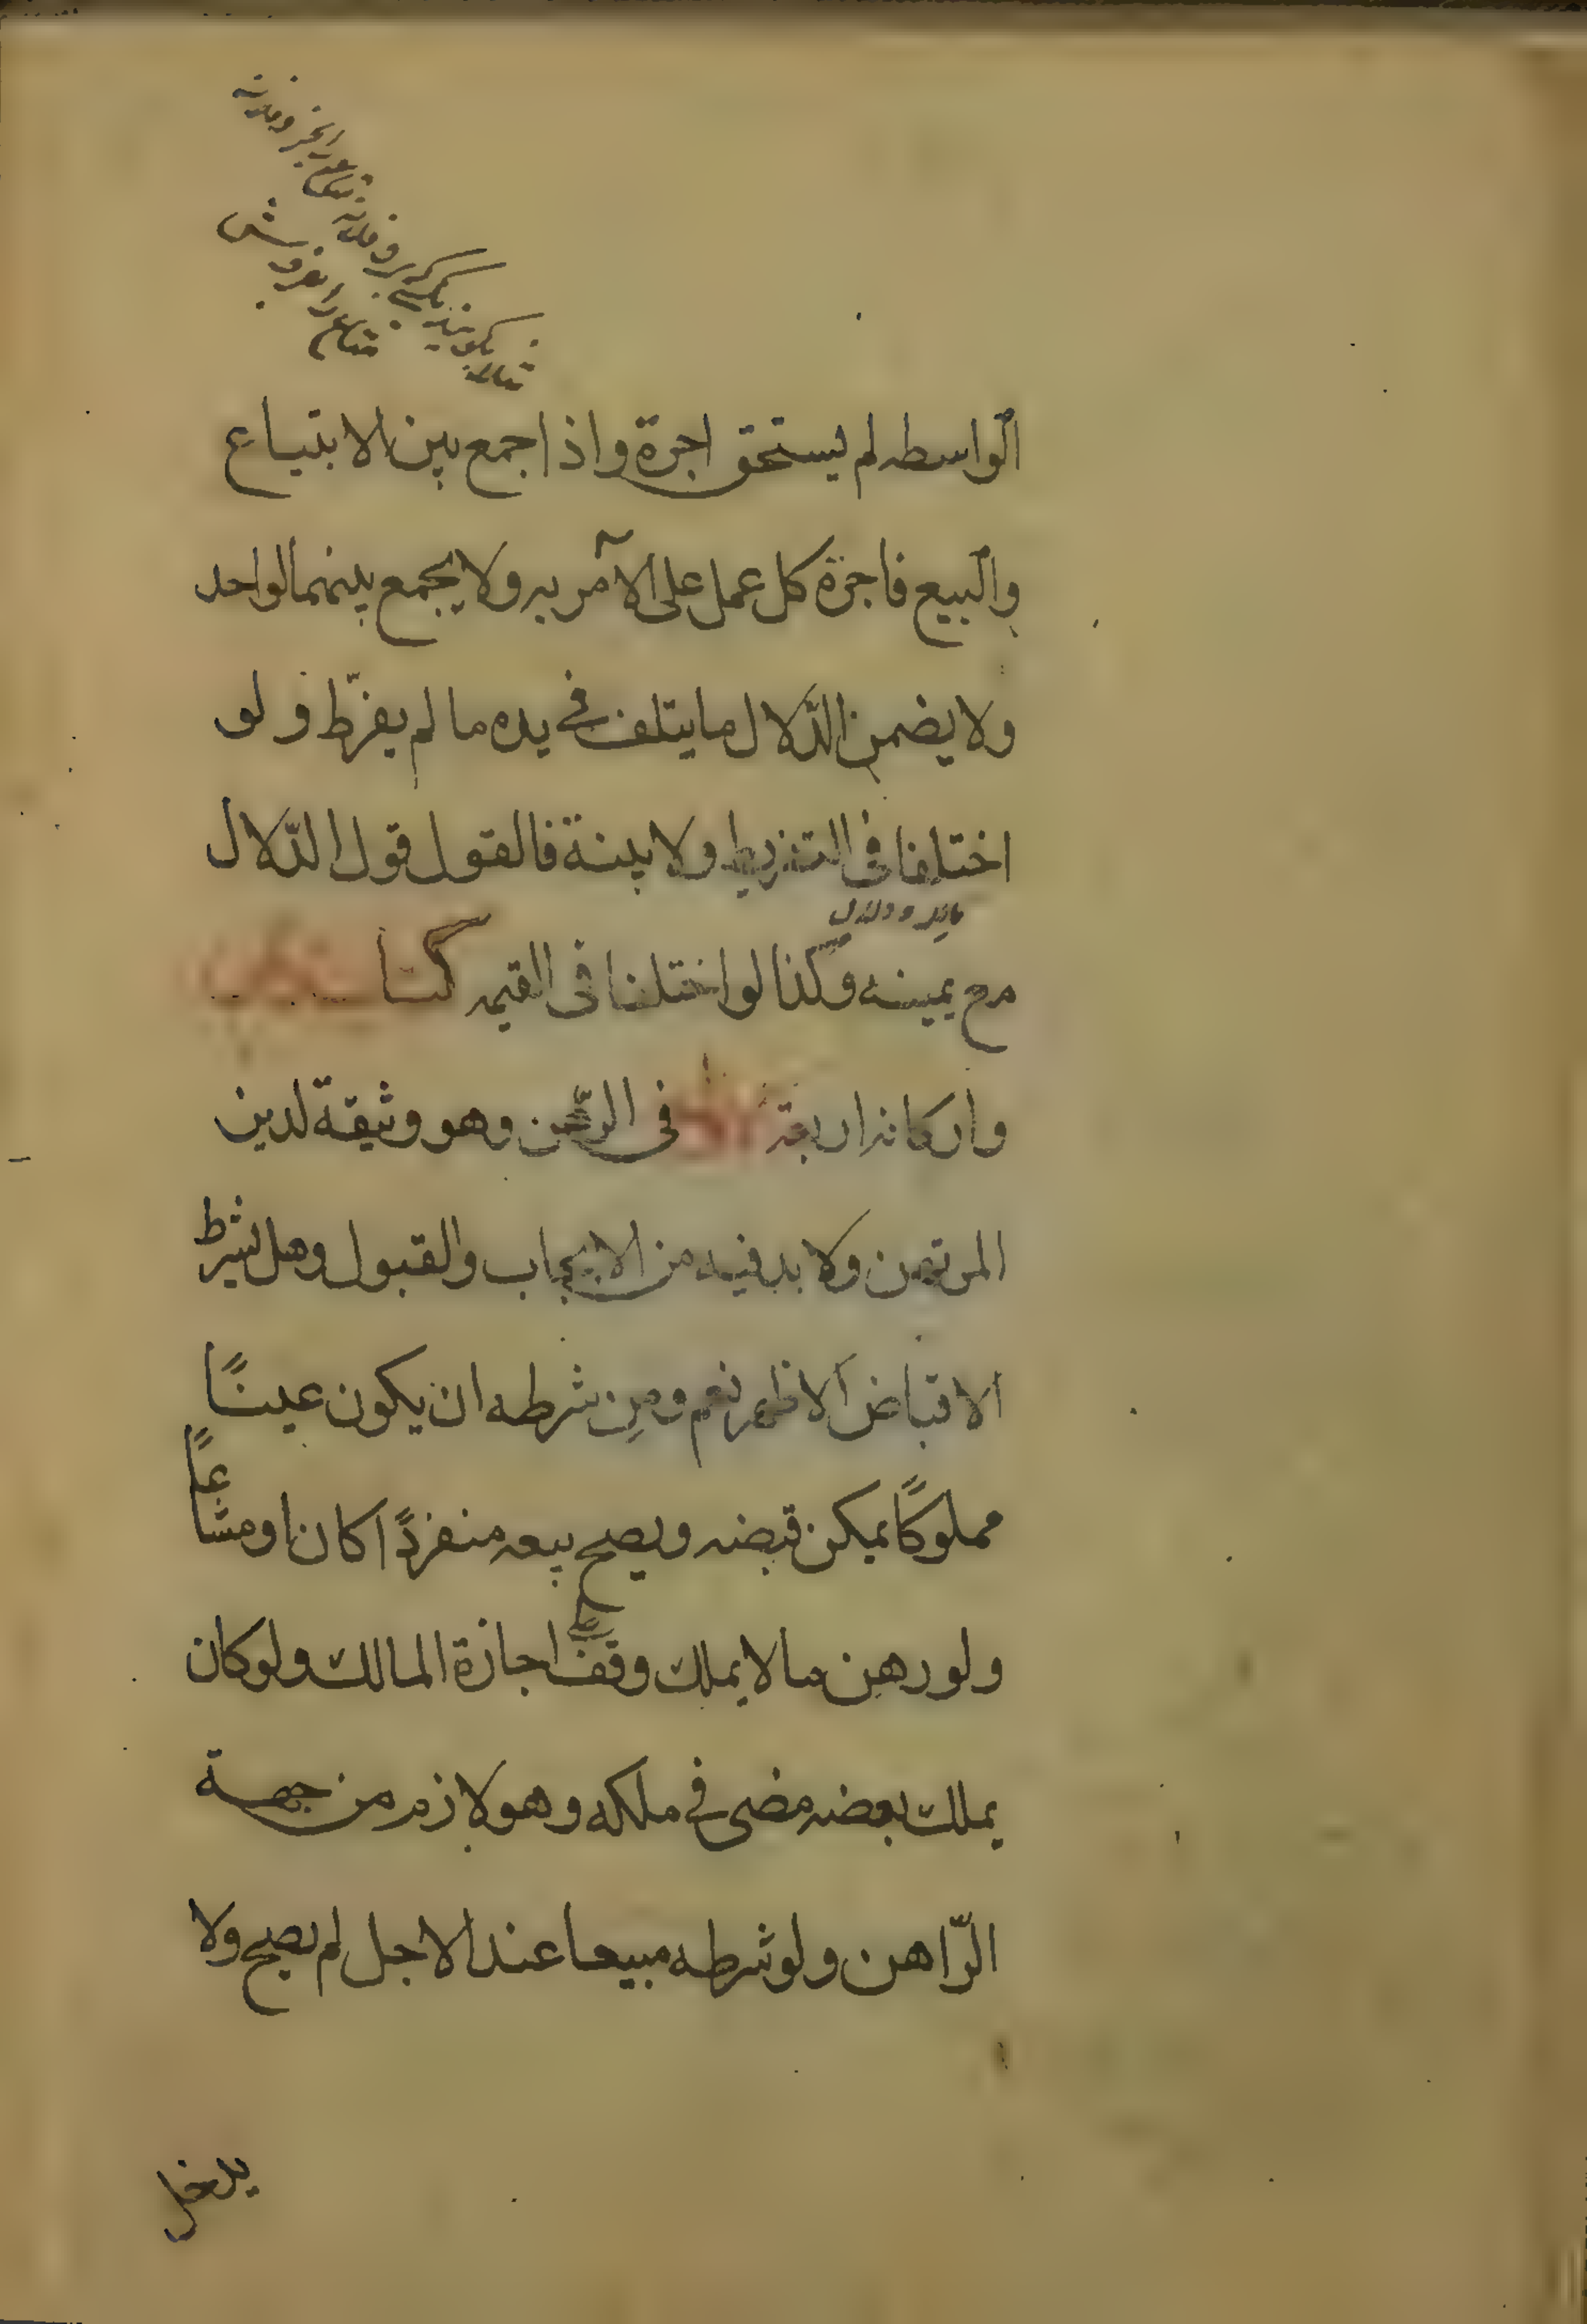 مثلا بکویند بکسی که برو فلان متاع را بخر و فلان
متاع را بفروش
الواسطه لم يستحق اجرة واذا جمع بين الابتياع
والبيع فاجرة كل عمل على الآمر به ولا يجمع بينهما لواحد
ولا يضمن الدّلال ما يتلف فى يده ما لم يفرّط ولو
اختلفا فى التفريط ولا بينة فالقول قول الدّلال
مع يمينه وكذا لو اختلفا فى القيمه كتاب
واركانه اربعة فى الرّهن وهو وثيقة لدين
المرتهن ولا بد فيه من الايجاب والقبول وهل يشترط
الاقباض الاظهر نعم ومن شرطه ان يكون عينًا
مملوكًا يمكن قبضه ويصح بيعه منفردًا كان او مشاعًا
ولو رهن ما لا يملك وقف اجازة المالك ولو كان
يملك بعضه مضى فى ملكه وهو لازم من جهة
الرّاهن ولو شرطه مبيعا عند الاجل لم يصح ولا
يدخل